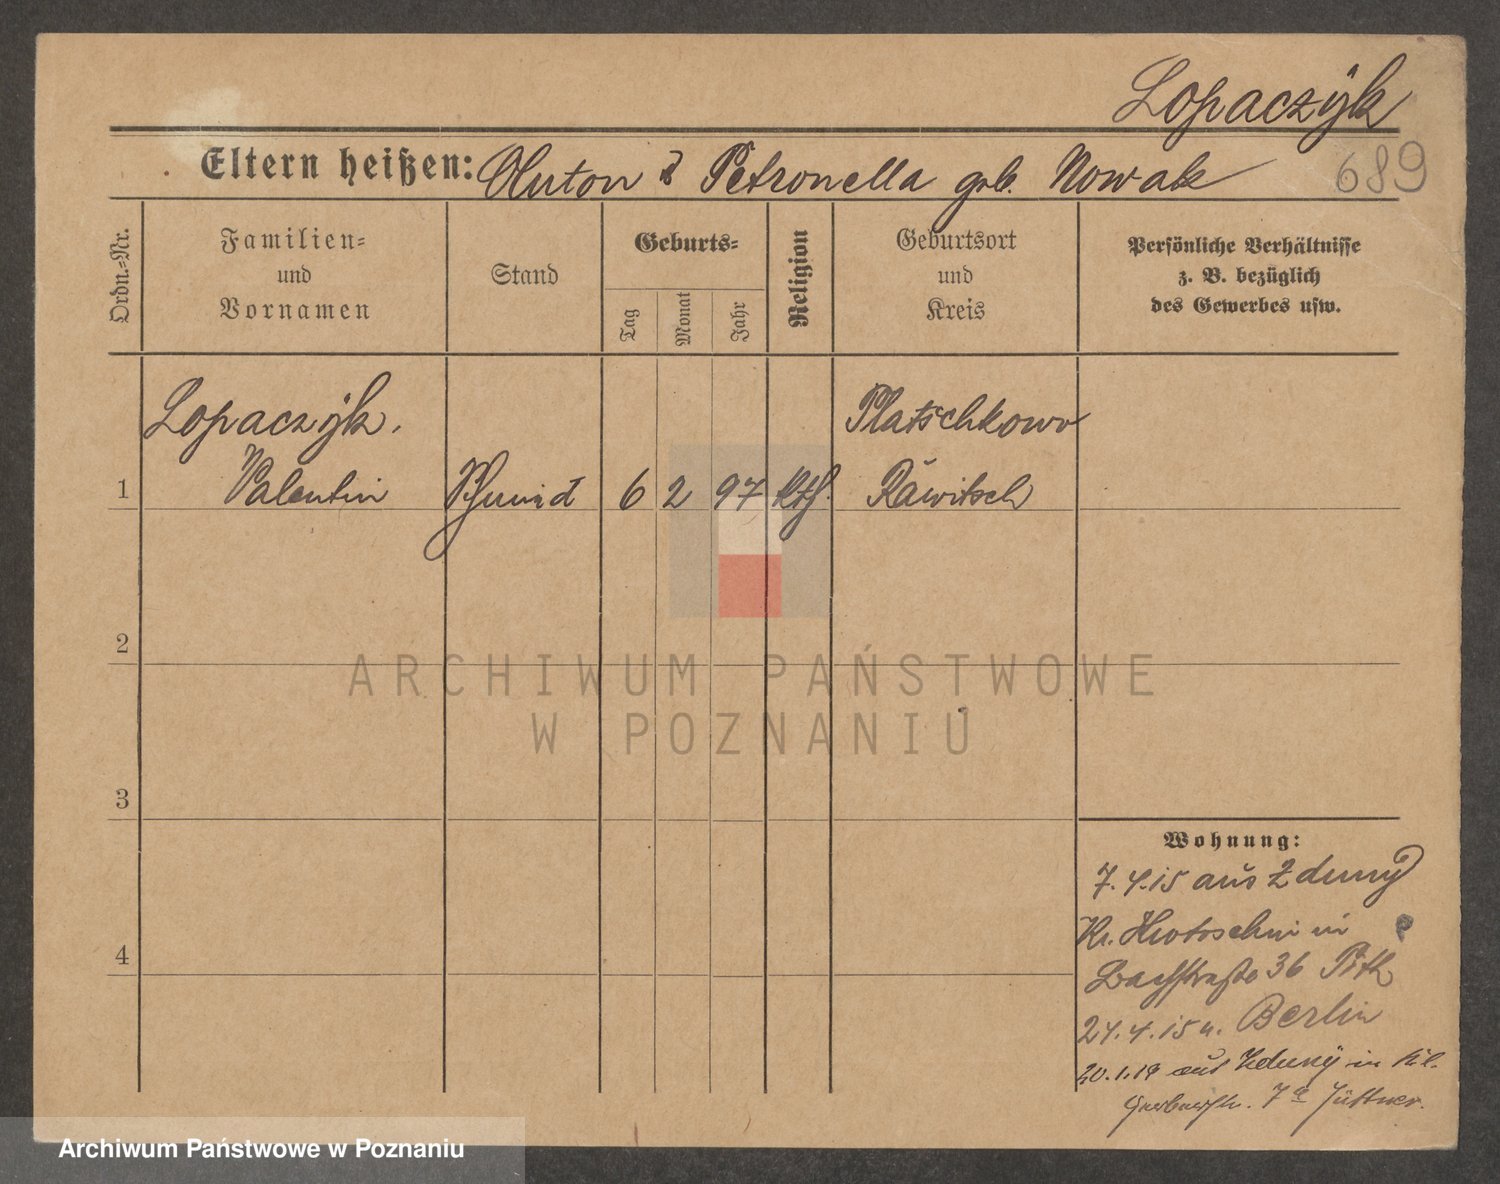 Lopaczÿk
Eltern heißen: Anton & Petronella geb. Nowak
689
Ordn.-Nr.
Familien-
und
Vornamen
Stand
Geburts-
Tag
Monat
Jahr
Religion
Geburtsort
und
Kreis
Persönliche Verhältnisse
z. B. bezüglich
des Gewerbes usw.
Lopaczÿk.
Valentin
1
6 2 97 Kth.
Platschkowo
Rawitsch
2
3
4
Wohnung:
7.4.15 aus Zduny
Kr. Krotoschin in
Bachstraße 36
24.4.15 n. Berlin
20.1.19 aus Zduny in
7a Jüttner.
ARCHIWUM PAŃSTWOWE
W POZNANIU
Archiwum Państwowe w Poznaniu